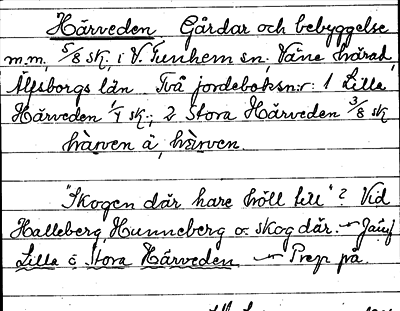 Härveden Gårdar och bebyggelse
m.m. 5/8 sk. i V. Tunhem sn, Väne härad,
Älfsborgs län. Två jordeboksn:r: 1 Lilla
Härveden 1/4 sk., 2 Stora Härveden 3/8 sk
hàrven å, hàrven.
"Skogen där hare höll till"? Vid
Halleberg, Hunneberg o. skog där. — Jämf
Lilla o Stora Härveden — Prep på.